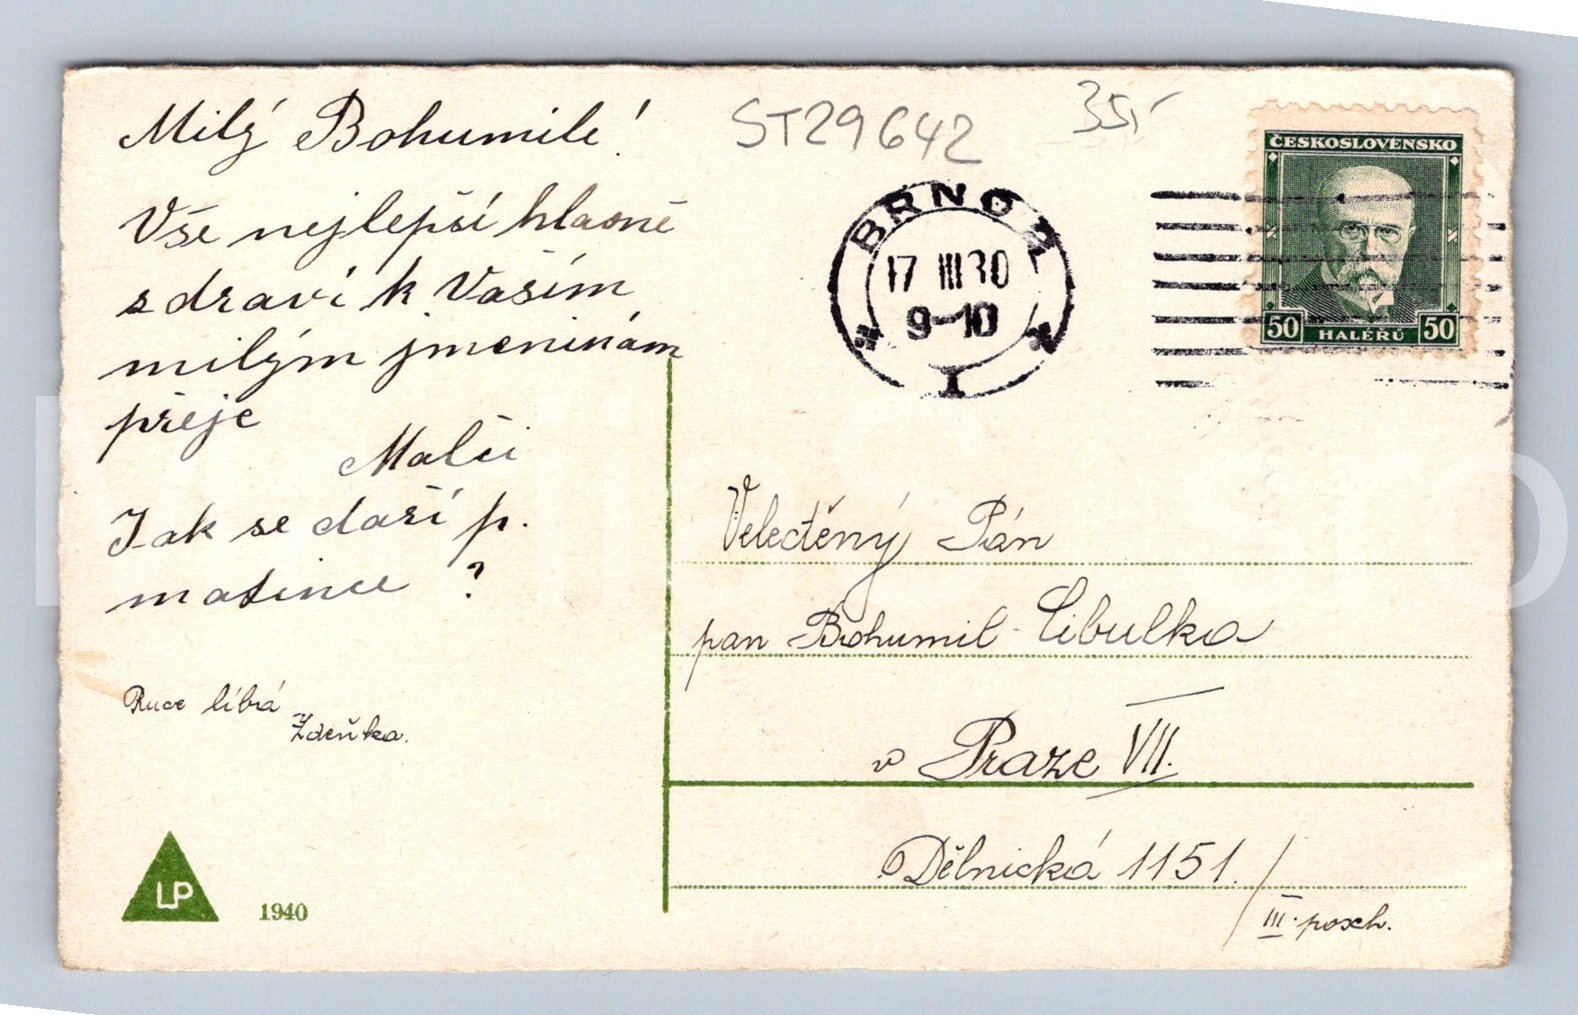 Milý Bohumile!
Vše nejlepší hlavně
zdraví k Vašim
milým jmeninám
přeje
Malči
Jak se daří p.
matince ?
Ruce líbá
Zdeňka.
LP
1940
ST29642
35,-
BRNO 2
17 III 30
9-10
1
ČESKOSLOVENSKO
50 HALÉŘŮ 50
Velectěný Pán
pan Bohumil Cibulka
v Praze VII.
Dělnická 1151./
III. posch.